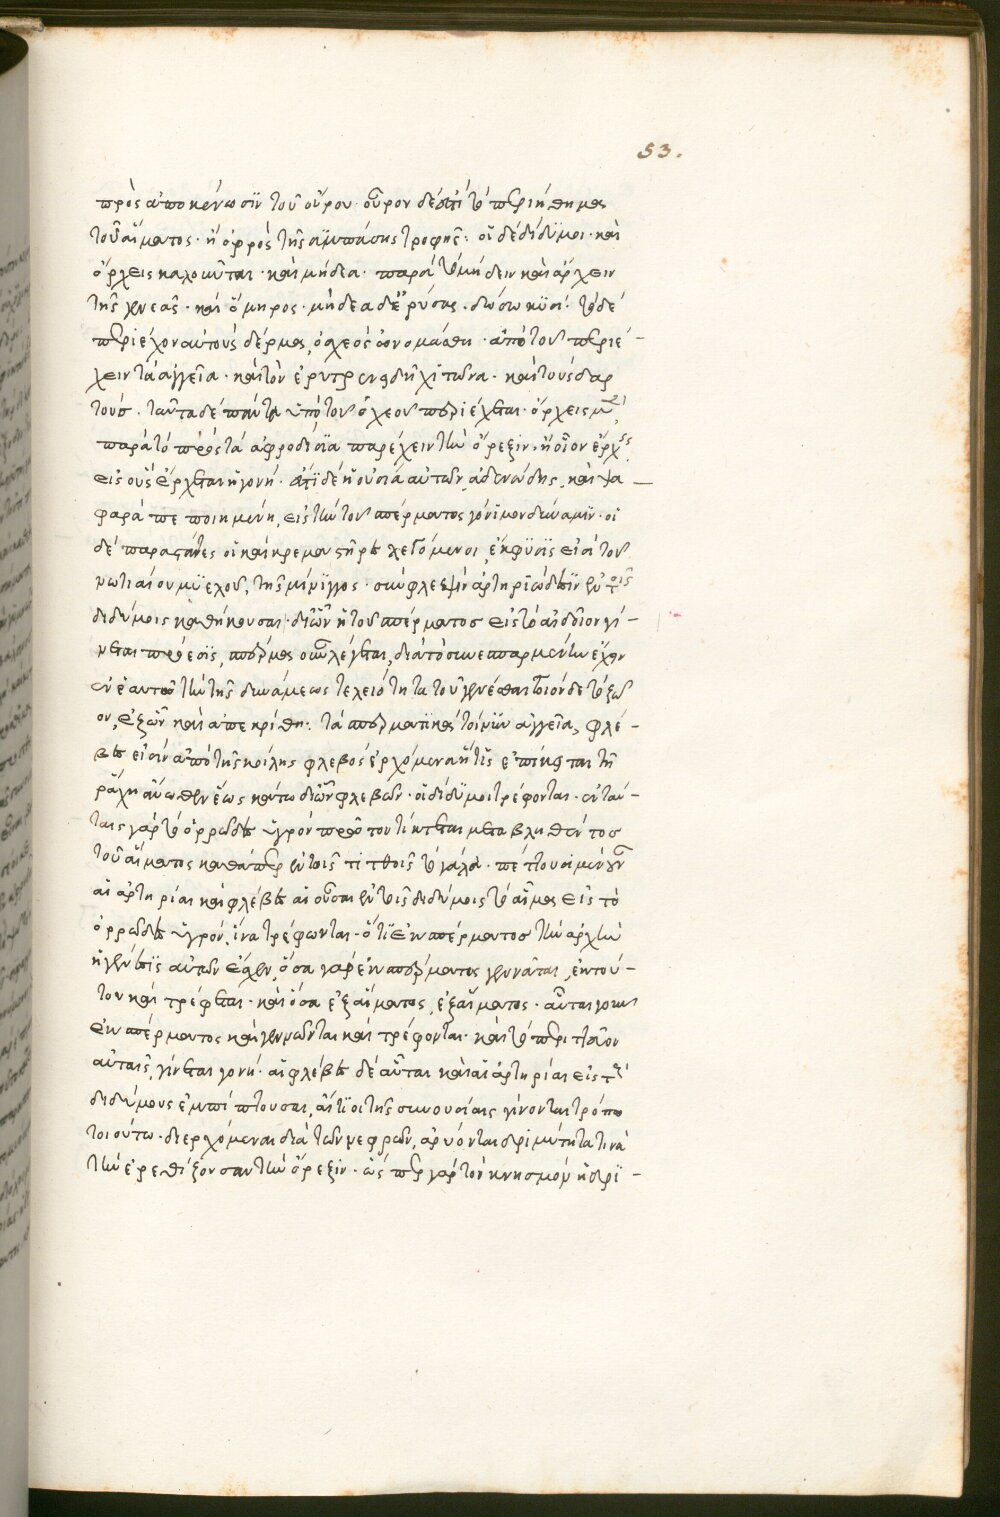 53.
πρὸς ἀποκένωσϊν τοῦ οὔρου · οὖρον δέ ἐστι τὸ περιήθημα
τοῦ αἵματος · ἢ ὀρρὸς τῆς συμπάσης τροφῆς : οἱ δὲ δίδϋμοι · καὶ
ὄρχεις καλοῦνται · καὶ μήδεα · παρὰ τὸ μήδειν καὶ ἄρχειν
τῆς γενεᾶς · καὶ ὅμηρος · μήδεα δ' ἐξερύσας · δώσω κϋσί · τὸ δὲ
περιέχον αὐτοὺς δέρμα, ὀσχεὸς ὠνομάσθη · ἀπὸ τοῦ περιέ-
χειν τὰ ἀγγεῖα · καὶ τὸν ἐρυτροειδῆ χιτῶνα · καὶ τοὺς δαρ
τούσ · ταῦτα δὲ πάντα ὑπὸ τοῦ ὄσχεου περιέχεται · ὄρχεις μὲν,
παρὰ τὸ πρὸς τὰ ἀφροδίσϊα παρέχειν τὴν ὄρεξιν, ἢ οἷον ἔρχεις,
εἰς οὓς ἔρχεται ἡ γονή · ἔστϊ δὲ ἡ οὐσία αὐτῶν, ἀδενώδης, καὶ ψα-
φαρά πεποιημένη, εἰς τὴν τοῦ σπέρματος γόνϊμον δύναμϊν · οἱ
δὲ παραστάτες οἱ καὶ κρεμαστῆρες λεγόμενοι, ἐκφύσϊς εἰσὶ τοῦ
νωτιαίου μϋελοῦ, τῆς μήνιγγος · σὺν φλεψὶν ἀρτηρϊώδεσϊν ἐν τοῖς
διδύμοις καθήκουσαι · δι' ὧν ἡ τοῦ σπέρματοσ εἰς τὸ αἰδοῖον γί-
νεται πρόεσϊς, σπέρμα οὖν λέγεται, διὰ τὸ συνεσπαρμένην ἔχειν
ἐν ἑαυτῷ τὴν τῆς δυνάμεως τελειότητα τοῦ γενέσθαι τοιόνδε τὸ ζῶ
ον, ἐξ ὧν καὶ ἀπεκρίθη · τὰ σπερματϊκὰ τοίνυν ἀγγεῖα, φλέ-
βες εἰσὶν ἀπὸ τῆς κοίλης φλεβὸς ἐρχόμεναι ἥτις ἐπίκειται τῆ
ράχη ἄνωθεν ἕως κάτω δι' ὧν φλεβῶν · οἱ δίδϋμοι τρέφονται · ἐν ταύ-
ταις γὰρ τὸ ὀρρῶδες ὑγρὸν πρῶτον τίκτεται μεταβληθέντοσ
τοῦ αἵματος καθάπερ ἐν τοῖς τιτθοῖς τὸ γάλα · πέττουσι μὲν οὖν
αἱ ἀρτηρίαι καὶ φλέβες αἱ οὖσαι ἐν τοῖς διδύμοις τὸ αἷμα εἰς τὸ
ὀρρῶδες ὑγρόν, ἵνα τρέφωνται · ὅτϊ ἐκ σπέρματοσ τὴν ἀρχὴν
ἡ γένεσϊς αὐτῶν ἔσχεν, ὅσα γὰρ ἐκ σπέρματος γεννᾶται, ἐκ τού-
του καὶ τρέφεται · καὶ ὅσα ἐξ αἵματος, ἐξ αἵματος · αὗται γοῦν
ἐκ σπέρματος καὶ γεννῶνται καὶ τρέφονται · καὶ τὸ περιττὸν
αὐταῖς, γίνεται γονή · αἱ φλέβες δὲ αὗται καὶ αἱ ἀρτηρίαι εἰς τοὺς
διδύμους ἐμπίπτουσαι, αἴτϊοι τῆς συνουσίας γίνονται τρόπῳ
τοιούτω · διερχόμεναι διὰ τῶν νεφρῶν, ἀρύονται δριμύτητα τινὰ
τὴν ἐρεθίζουσαν τὴν ὄρεξϊν · ὡς περ γὰρ τὸν κνησμὸν ἡ δρϊ-